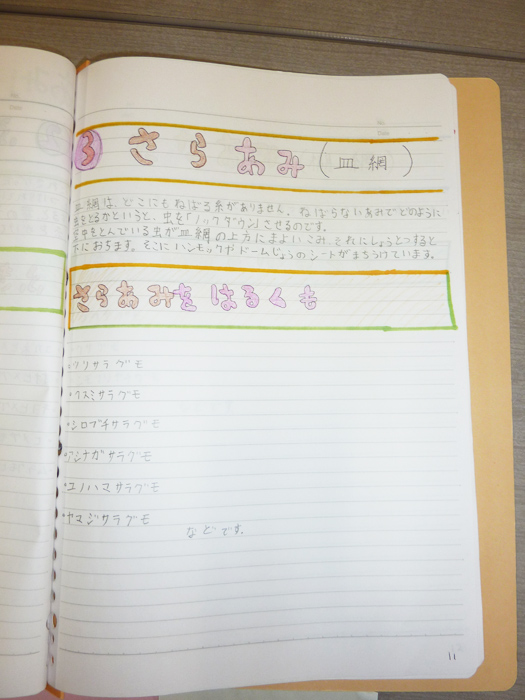 3 さらあみ(皿網)
皿網は、どこにもねばる糸がありません。ねばらないあみでどのように
虫をとるかというと、虫を「ノックダウン」させるのです。
空中をとんでいる虫が皿網の上方にまよいこみ、それにしょうとつすると
下におちます。そこにハンモックやドームじょうのシートがまちうけています。
さらあみをはるくも
・クスミサラグモ
・シロブチサラグモ
・アシナガサラグモ
・ユノハマサラグモ
・ヤマジサラグモ
などです。
11